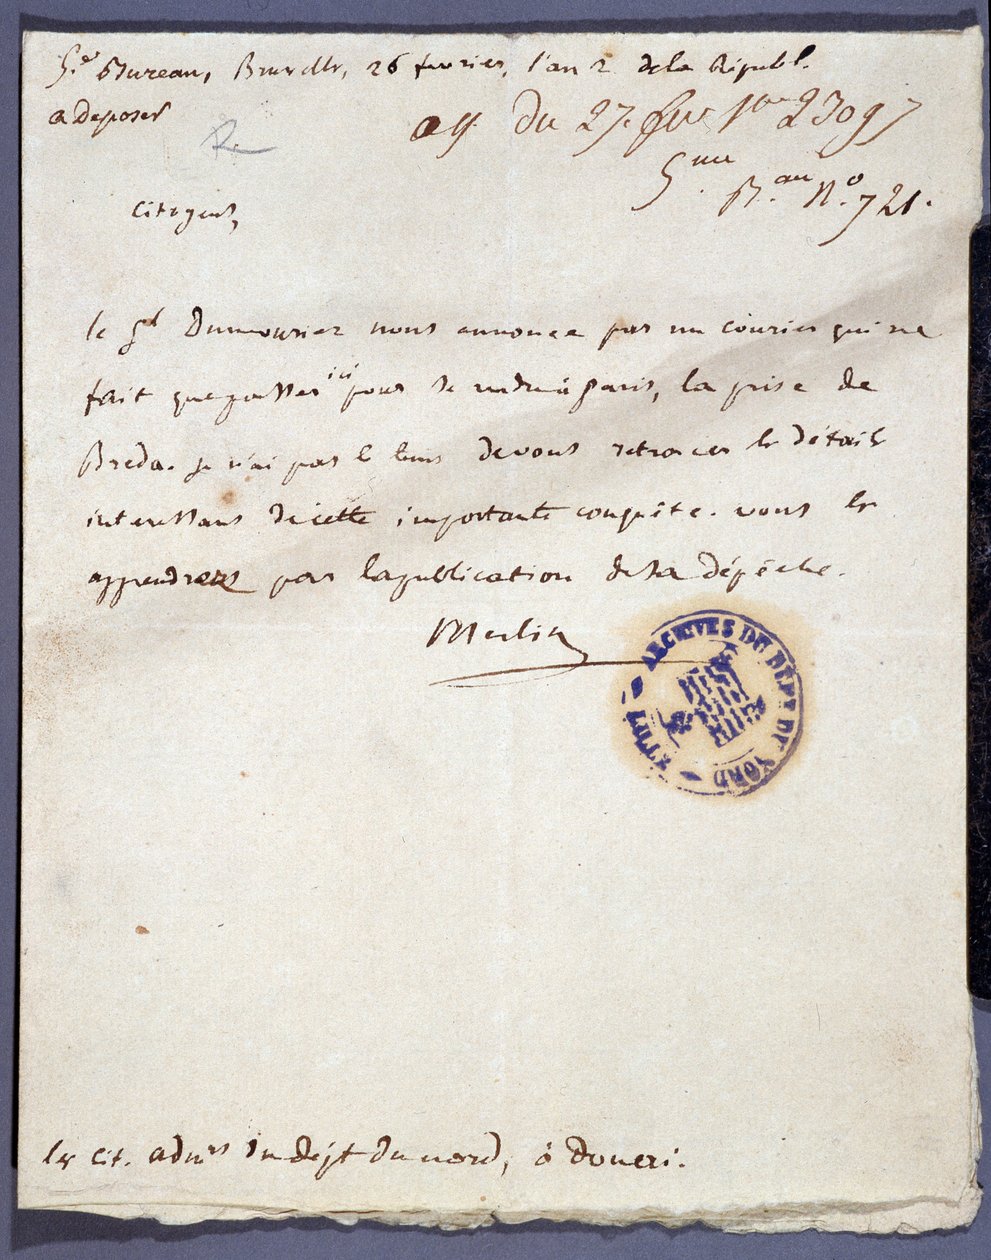 5e Bureau, Bruxelles, 26 fevrier, l'an 2 de la Républ.
a deposer
du 27. fev. 23097
5me
B.au N.o 721.
Citoyens,
le gl Dumourier nous annonce par un courier qui ne
fait que passer ici pour se rendre à Paris, la prise de
Breda. je n'ai pas le tems de vous retracer les détails
interessans de cette importante conquête. vous les
apprendrez par la publication de sa dépêche.
Merlin
ARCHIVES DU DÉPT DU NORD
LILLE
les cit. adm.rs du dépt du nord, à Douai.